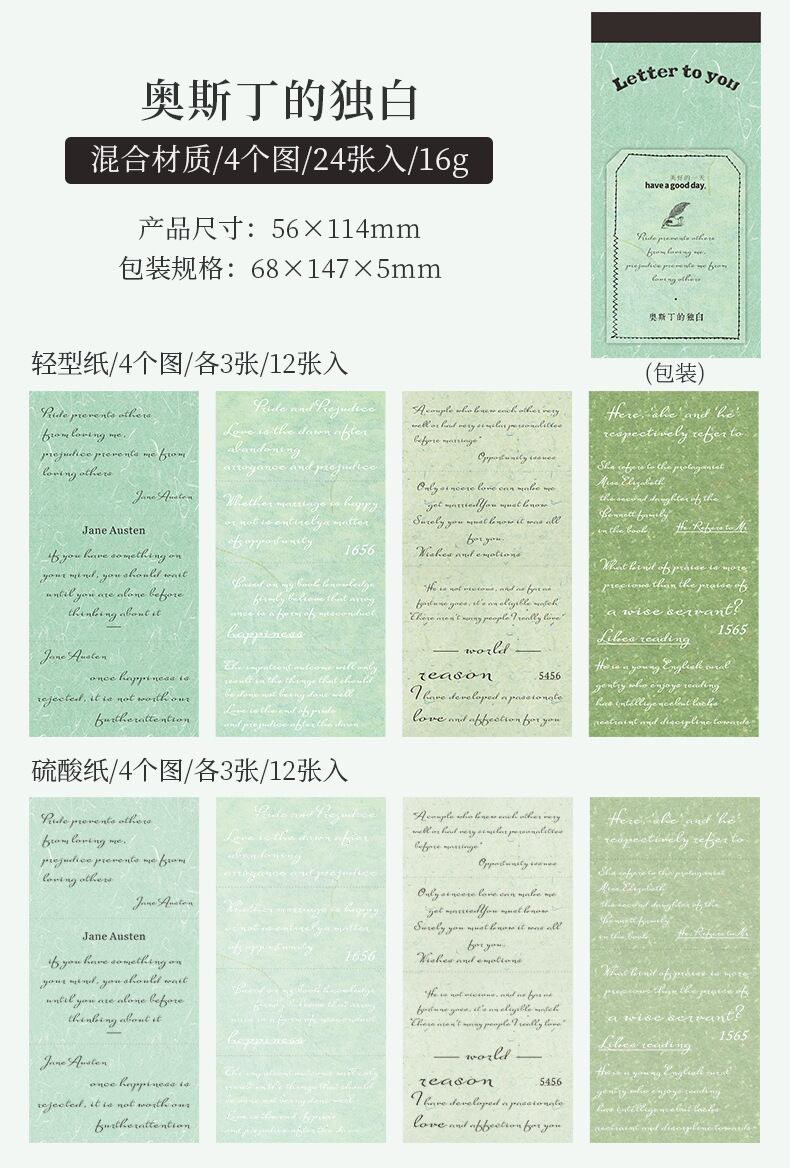 奥斯丁的独白
混合材质/4个图/24张入/16g
产品尺寸：56×114mm
包装规格：68×147×5mm
Letter to you
美好的一天
have a good day.
Pride prevents others
from loving me,
prejudice prevents me from
loving others
奥斯丁的独白
(包装)
轻型纸/4个图/各3张/12张入
Pride prevents others
from loving me,
prejudice prevents me from
loving others
Jane Austen
Jane Austen
if you have something on
your mind, you should wait
until you are alone before
thinking about it
Jane Austen
once happiness is
rejected, it is not worth our
furtherattention
Pride and Prejudice
Love is the dawn after
abandoning
arrogance and prejudice
Whether marriage is happy
or not is entirely a matter
of opportunity
1656
Based on my book knowledge
firmly believe that arrog
ance is a form of misconduct
happiness
The impatient outcome will only
result in the things that should
be done not being done well
Love is the end of pride
and prejudice after the dawn
"A couple who knew each other very
well or had very similar personalities
before marriage"
Opportunity issues
Only sincere love can make me
get marriedYou must know
Surely you must know it was all
for you.
Wishes and emotions
"He is not vicious, and as far as
fortune goes, it's an eligible match
"There aren't many people I really love"
world
reason 5456
I have developed a passionate
love and affection for you
Here, 'she' and 'he'
respectively refer to
She refers to the protagonist
Miss Elizabeth
the second daughter of the
Bennett family
in the book He Refers to Mr
What kind of praise is more
precious than the praise of
a wise servant?
1565
Likes reading
He is a young English rural
gentry who enjoys reading
has intelligence but lacks
restraint and discipline towards
硫酸纸/4个图/各3张/12张入
Pride prevents others
from loving me,
prejudice prevents me from
loving others
Jane Austen
Jane Austen
if you have something on
your mind, you should wait
until you are alone before
thinking about it
Jane Austen
once happiness is
rejected, it is not worth our
furtherattention
Pride and Prejudice
Love is the dawn after
abandoning
arrogance and prejudice
Whether marriage is happy
or not is entirely a matter
of opportunity
1656
Based on my book knowledge
firmly believe that arrog
ance is a form of misconduct
happiness
The impatient outcome will only
result in the things that should
be done not being done well
Love is the end of pride
and prejudice after the dawn
"A couple who knew each other very
well or had very similar personalities
before marriage"
Opportunity issues
Only sincere love can make me
get marriedYou must know
Surely you must know it was all
for you.
Wishes and emotions
"He is not vicious, and as far as
fortune goes, it's an eligible match
"There aren't many people I really love"
world
reason 5456
I have developed a passionate
love and affection for you
Here, 'she' and 'he'
respectively refer to
She refers to the protagonist
Miss Elizabeth
the second daughter of the
Bennett family
in the book He Refers to Mr
What kind of praise is more
precious than the praise of
a wise servant?
1565
Likes reading
He is a young English rural
gentry who enjoys reading
has intelligence but lacks
restraint and discipline towards